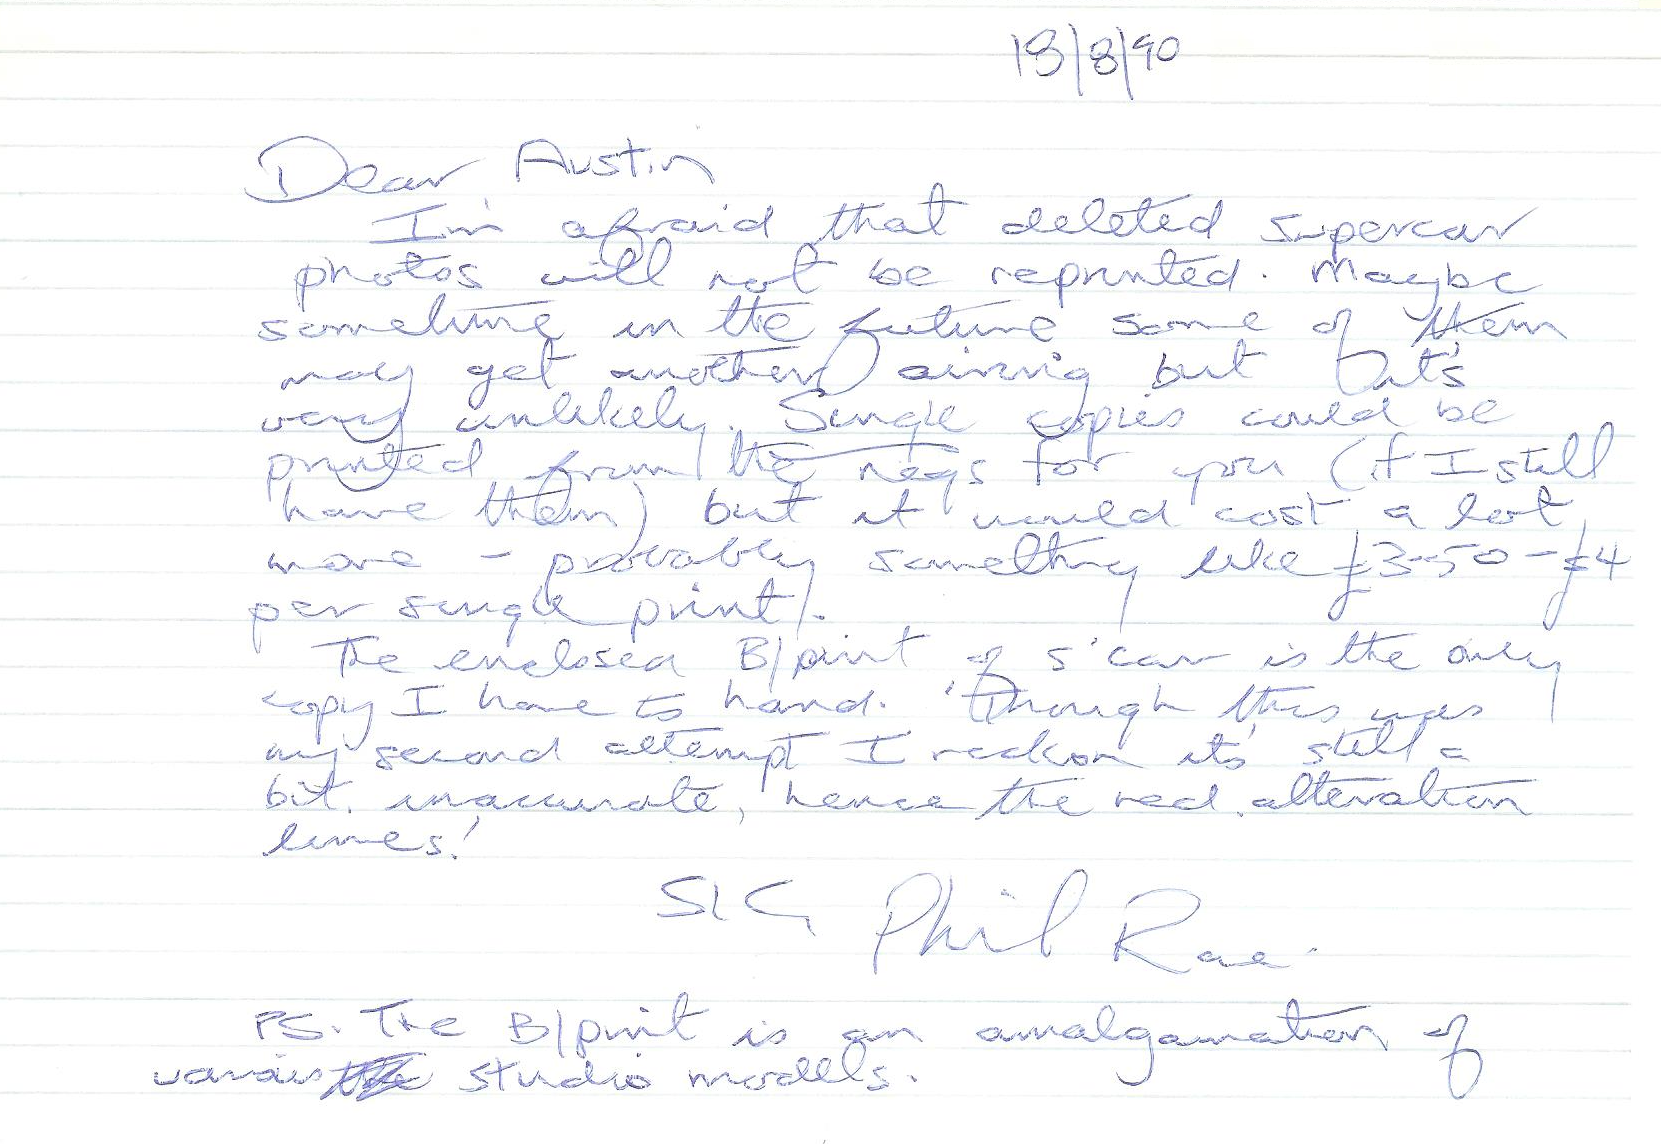 18/8/90
Dear Austin
I'm afraid that deleted supercar
photos will not be reprinted. Maybe
sometime in the future some of them
may get another airing but it's
very unlikely. Single copies could be
printed from the negs for you (if I still
have them) but it would cost a lot
more - probably something like £3-50 - £4
per single print.
The enclosed B/print of S'car is the only
copy I have to hand. 'Though this was
my second attempt I reckon it's still a
bit inaccurate, hence the red alteration
lines!
SIG Phil Rae.
PS. The B/print is an amalgamation of
various studio models.